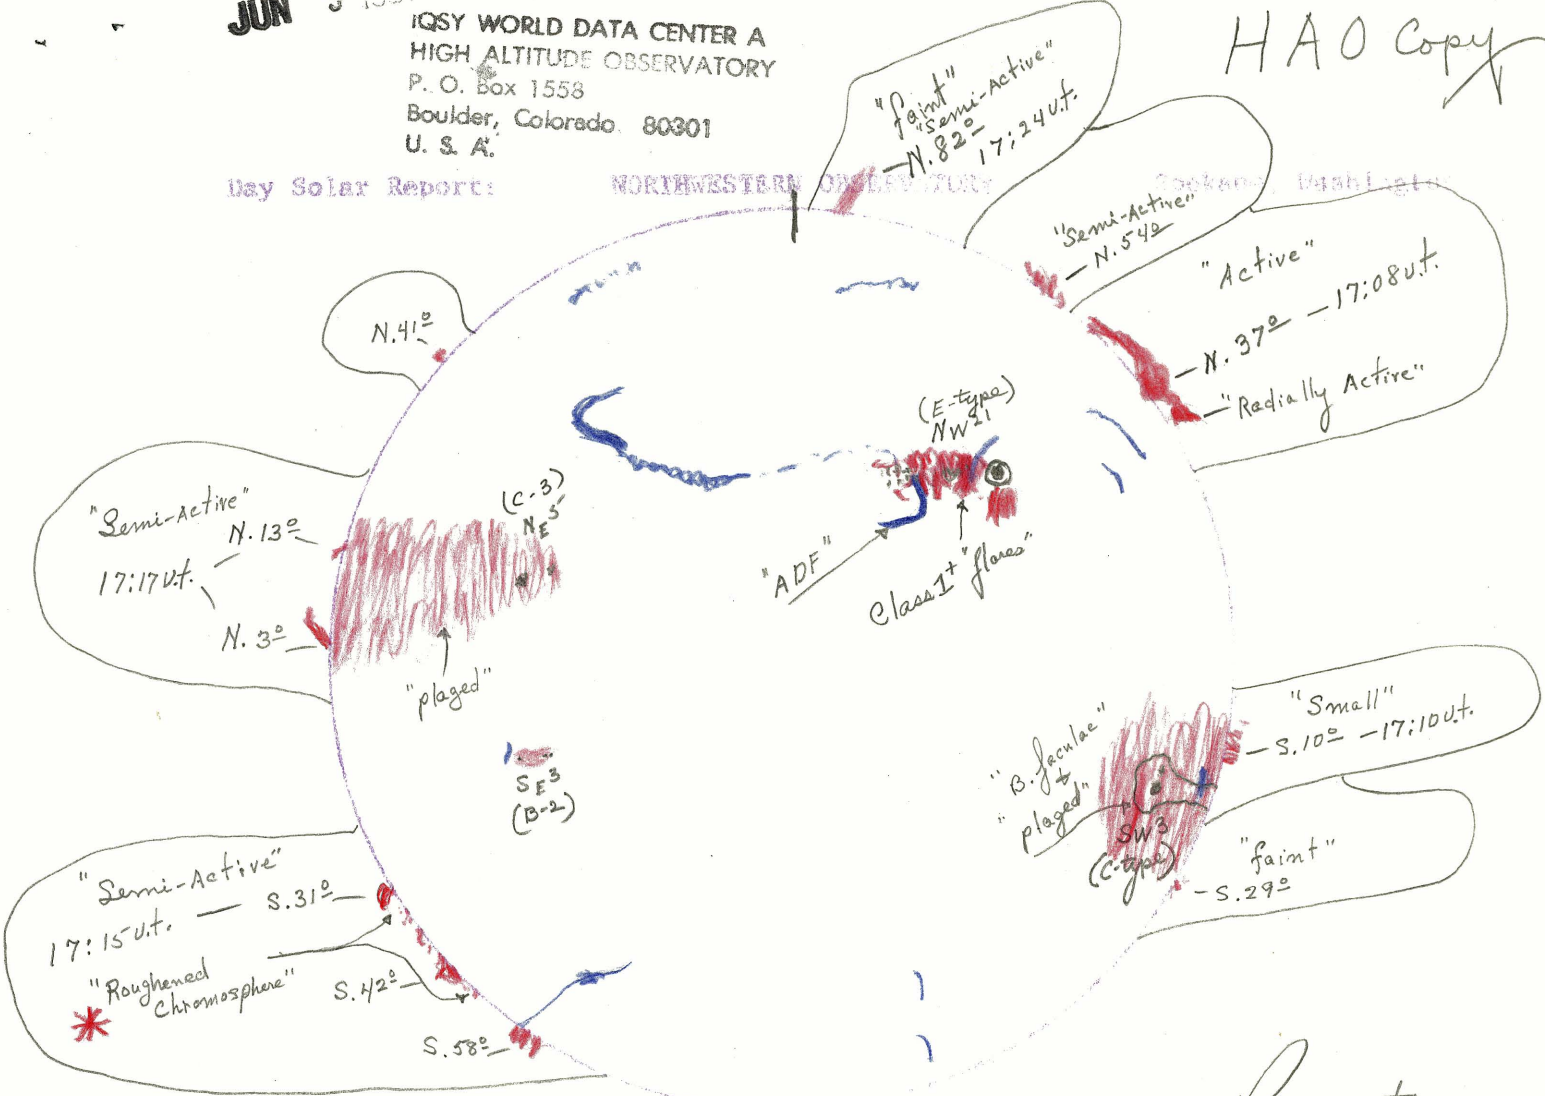 JUN
IQSY WORLD DATA CENTER A
HIGH ALTITUDE OBSERVATORY
P. O. Box 1558
Boulder, Colorado 80301
U. S. A.
HAO Copy
Day Solar Report: NORTHWESTERN OBSERVATORY Spokane, Washington
"faint"
"Semi-Active"
N.82º
17:24 U.t.
"Semi-Active"
N.54º
"Active"
N.37º — 17:08 U.t.
"Radially Active"
N.41º
(E-type)
NW21
"ADF"
Class 1+ "flares"
"Semi-Active"
N.13º
17:17 U.t.
N.3º
(C-3)
NE5
"plaged"
SE3
(B-2)
"Small"
S.10º — 17:10 U.t.
"B. faculae"
&
"plaged"
SW3
(C-type)
"faint"
S.29º
"Semi-Active"
17:15 U.t. — S.31º
"Roughened
Chromosphere"
S.42º
S.58º